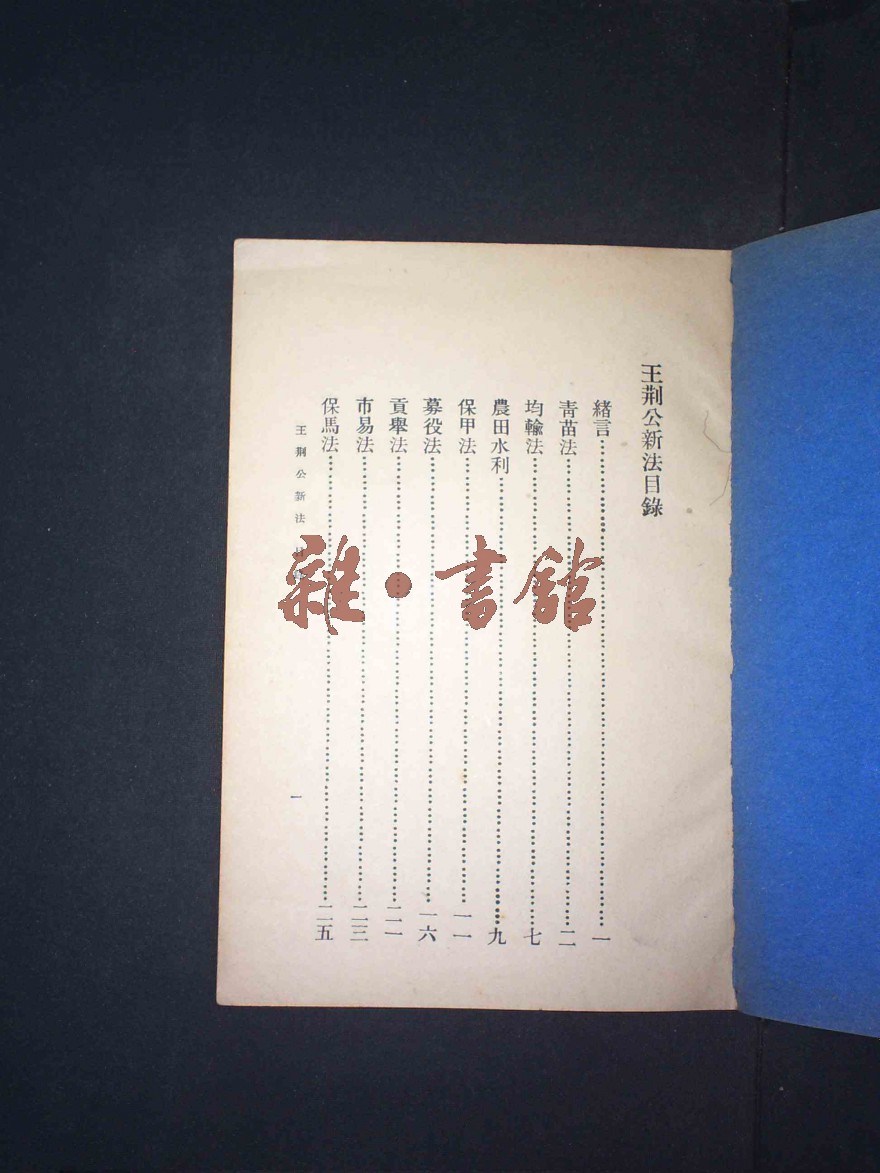 王荆公新法目錄
緒言…………一
靑苗法…………二
均輸法…………七
農田水利…………九
保甲法…………一一
募役法…………一六
貢舉法…………二一
市易法…………二三
保馬法…………二五
王荆公新法目錄
一
雜·書館